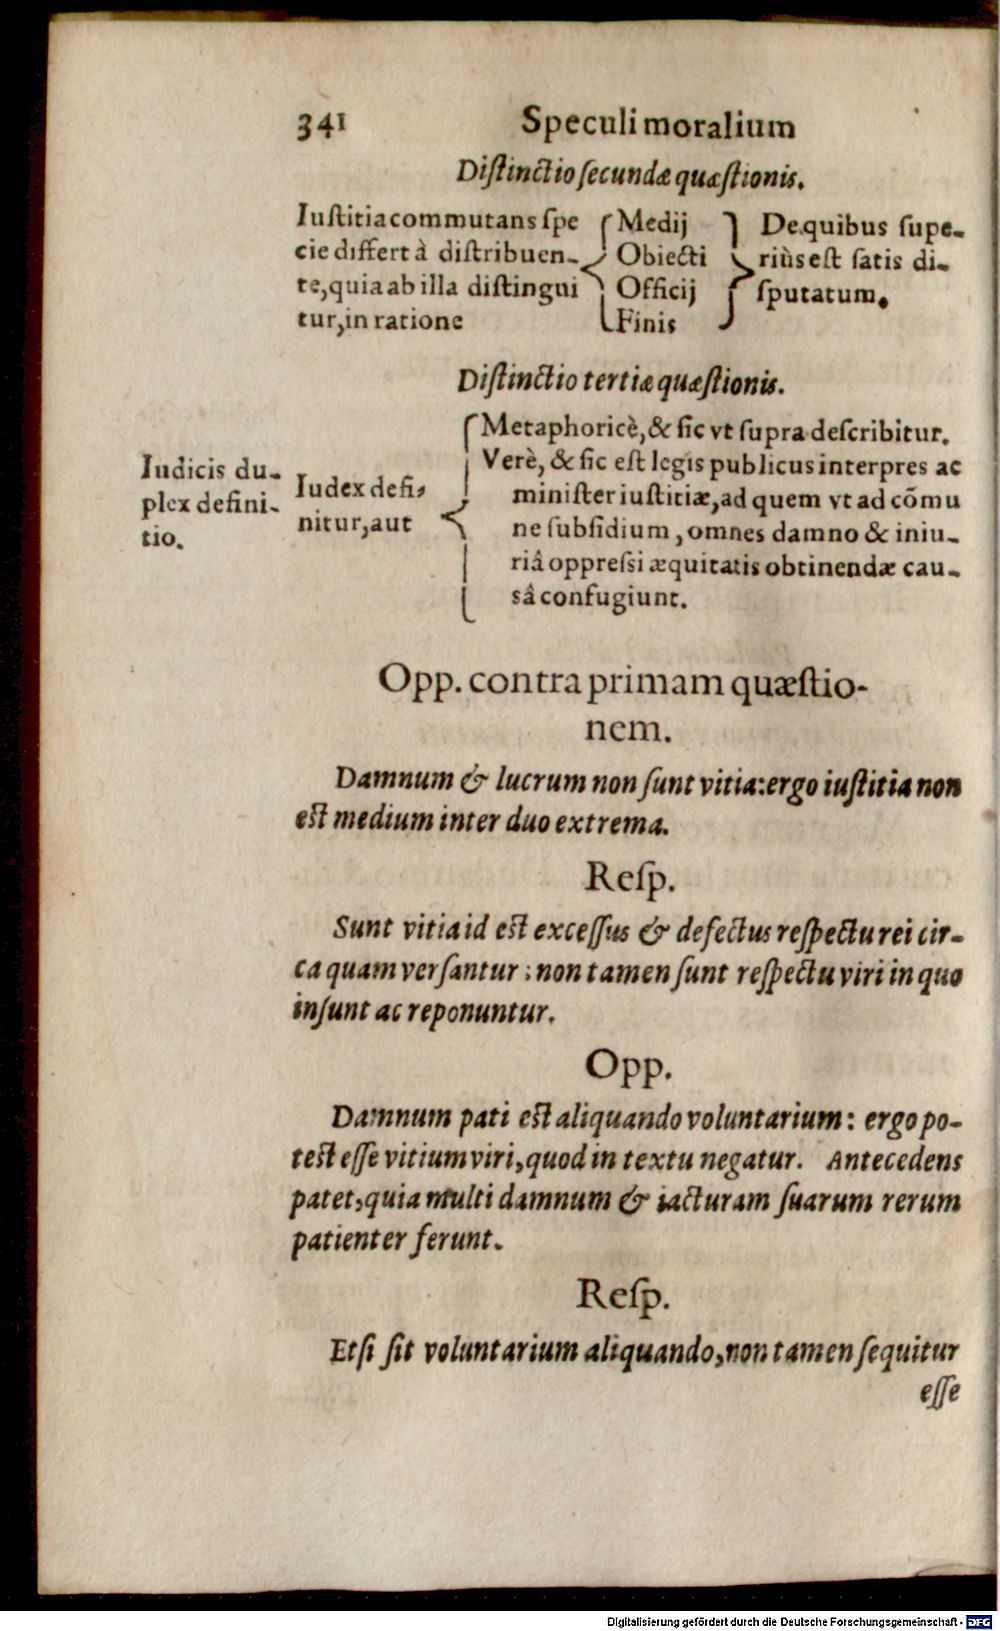 341 Speculi moralium
Distinctio secundæ quæstionis.
Iustitia commutans spe
cie differt à distribuen-
te, quia ab illa distingui
tur, in ratione
Medij
Obiecti
Officij
Finis
De quibus supe-
riùs est satis di-
sputatum.
Distinctio tertiæ quæstionis.
Iudicis du-
plex defini-
tio.
Iudex defi-
nitur, aut
Metaphoricè, & sic vt supra describitur.
Verè, & sic est legis publicus interpres ac
minister iustitiæ, ad quem vt ad cõmu
ne subsidium, omnes damno & iniu-
riâ oppressi æquitatis obtinendæ cau-
sâ confugiunt.
Opp. contra primam quæstio-
nem.
Damnum & lucrum non sunt vitia: ergo iustitia non
est medium inter duo extrema.
Resp.
Sunt vitia id est excessus & defectus respectu rei cir-
ca quam versantur: non tamen sunt respectu viri in quo
insunt ac reponuntur.
Opp.
Damnum pati est aliquando voluntarium: ergo po-
test esse vitium viri, quod in textu negatur. Antecedens
patet, quia multi damnum & iacturam suarum rerum
patienter ferunt.
Resp.
Etsi sit voluntarium aliquando, non tamen sequitur
esse
Digitalisierung gefördert durch die Deutsche Forschungsgemeinschaft - DFG